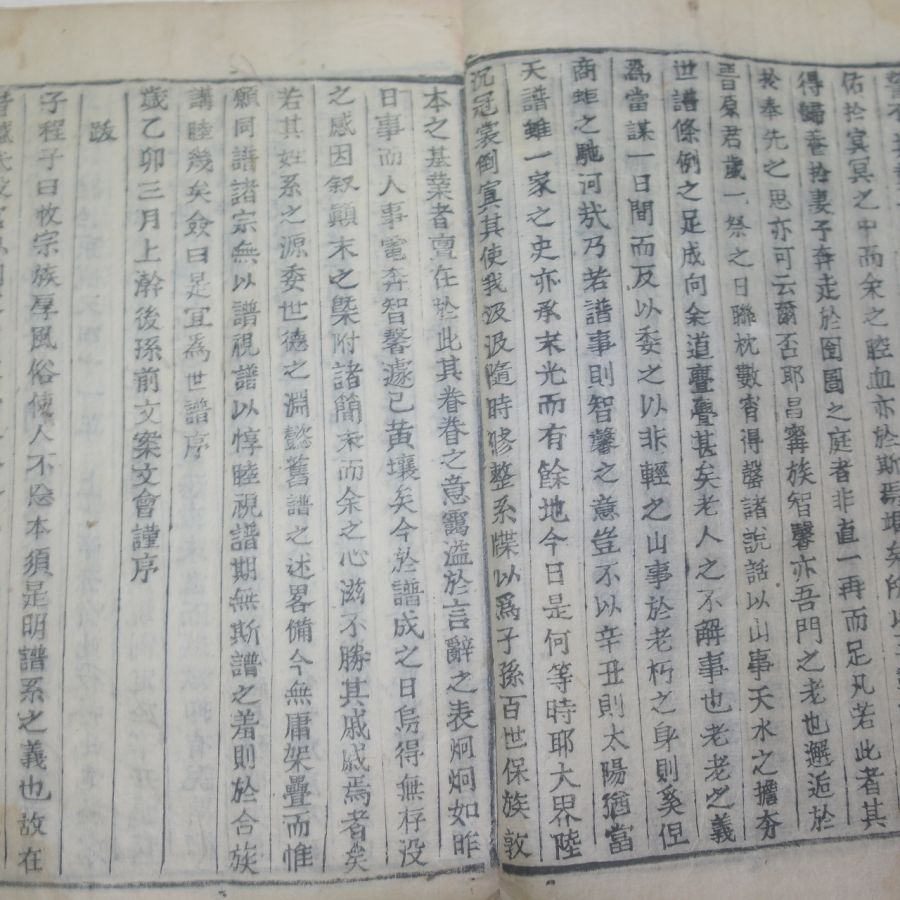 佑扵冥冥之中而余之腔血亦於斯
得歸養扵妻子奔走於囹圄之庭者非直一再而足凡若此者其
扵奉先之思亦可云爾否耶昌寗族智馨亦吾門之老也邂逅於
晋原君歲一祭之日聯枕數宵得罄諸說話以山事天水之擔夯
世譜條例之足成向余道亹亹甚矣老人之不解事也老老之義
爲當謀一日間而反以委之以非輕之山事於老朽之身則奚但
商蚷之馳河㢤乃若譜事則智馨之意豈不以辛丑則太陽猶當
天譜雖一家之史亦承末光而有餘地今日是何等時耶大界陸
沉冠裳倒寘其使我汲汲隨時修整系牒以爲子孫百世保族敦
本之基業者亶在扵此其眷眷之意靄溢於言辭之表炯炯如昨
日事而人事電奔智馨遽已黃壤矣今於譜成之日烏得無存没
之感因叙顚末之槩附諸簡末而余之心滋不勝其戚戚焉者矣
若其姓系之源委世德之淵懿舊譜之述畧備今無庸架疊而惟
願同譜諸宗無以譜視譜以惇睦視譜期無斯譜之羞則於合族
講睦幾矣僉曰是宜為世譜序
歲乙卯三月上澣後孫前文案文會謹序
跋
子程子曰牧宗族厚風俗使人不忘本須是明譜系之義也故在